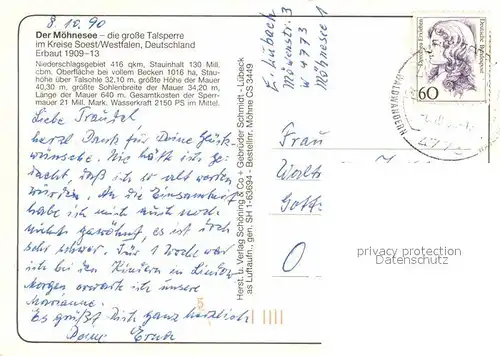 8 10.90
Der Möhnesee – die große Talsperre
im Kreise Soest/Westfalen, Deutschland
Erbaut 1909–13
Niederschlagsgebiet 416 qkm, Stauinhalt 130 Mill.
cbm. Oberfläche bei vollem Becken 1016 ha, Stau-
höhe über Talsohle 32,10 m, größte Höhe der Mauer
40,30 m, größte Sohlenbreite der Mauer 34,20 m,
Länge der Mauer 640 m. Gesamtkosten der Sperr-
mauer 21 Mill. Mark. Wasserkraft 2150 PS im Mittel.
Liebe Trautel
herzl Dank für Deine Glück-
wünsche. Nie hätte ich ge-
dacht, daß ich so alt werden
würde. An die Einsamkeit
habe ich mich noch
nicht gewöhnt, es ist doch
sehr schwer. Für 1 Woche war
ich bei den Kindern in
Morgen erwarte ich unsere
Marianne.
Es grüßt Dich ganz herzlich
Deine
Herst. u. Verlag Schöning & Co + Gebrüder Schmidt - Lübeck
as Luftaufn., gen. SH 1-63694 - Bestellnr. Möhne CG 3449
E. Lübach
Möwenstr. 3
W 4773
Möhnesee 1
Deutsche Bundespost
60
4773
Frau
Gott
0
5
privacy protection
Datenschutz